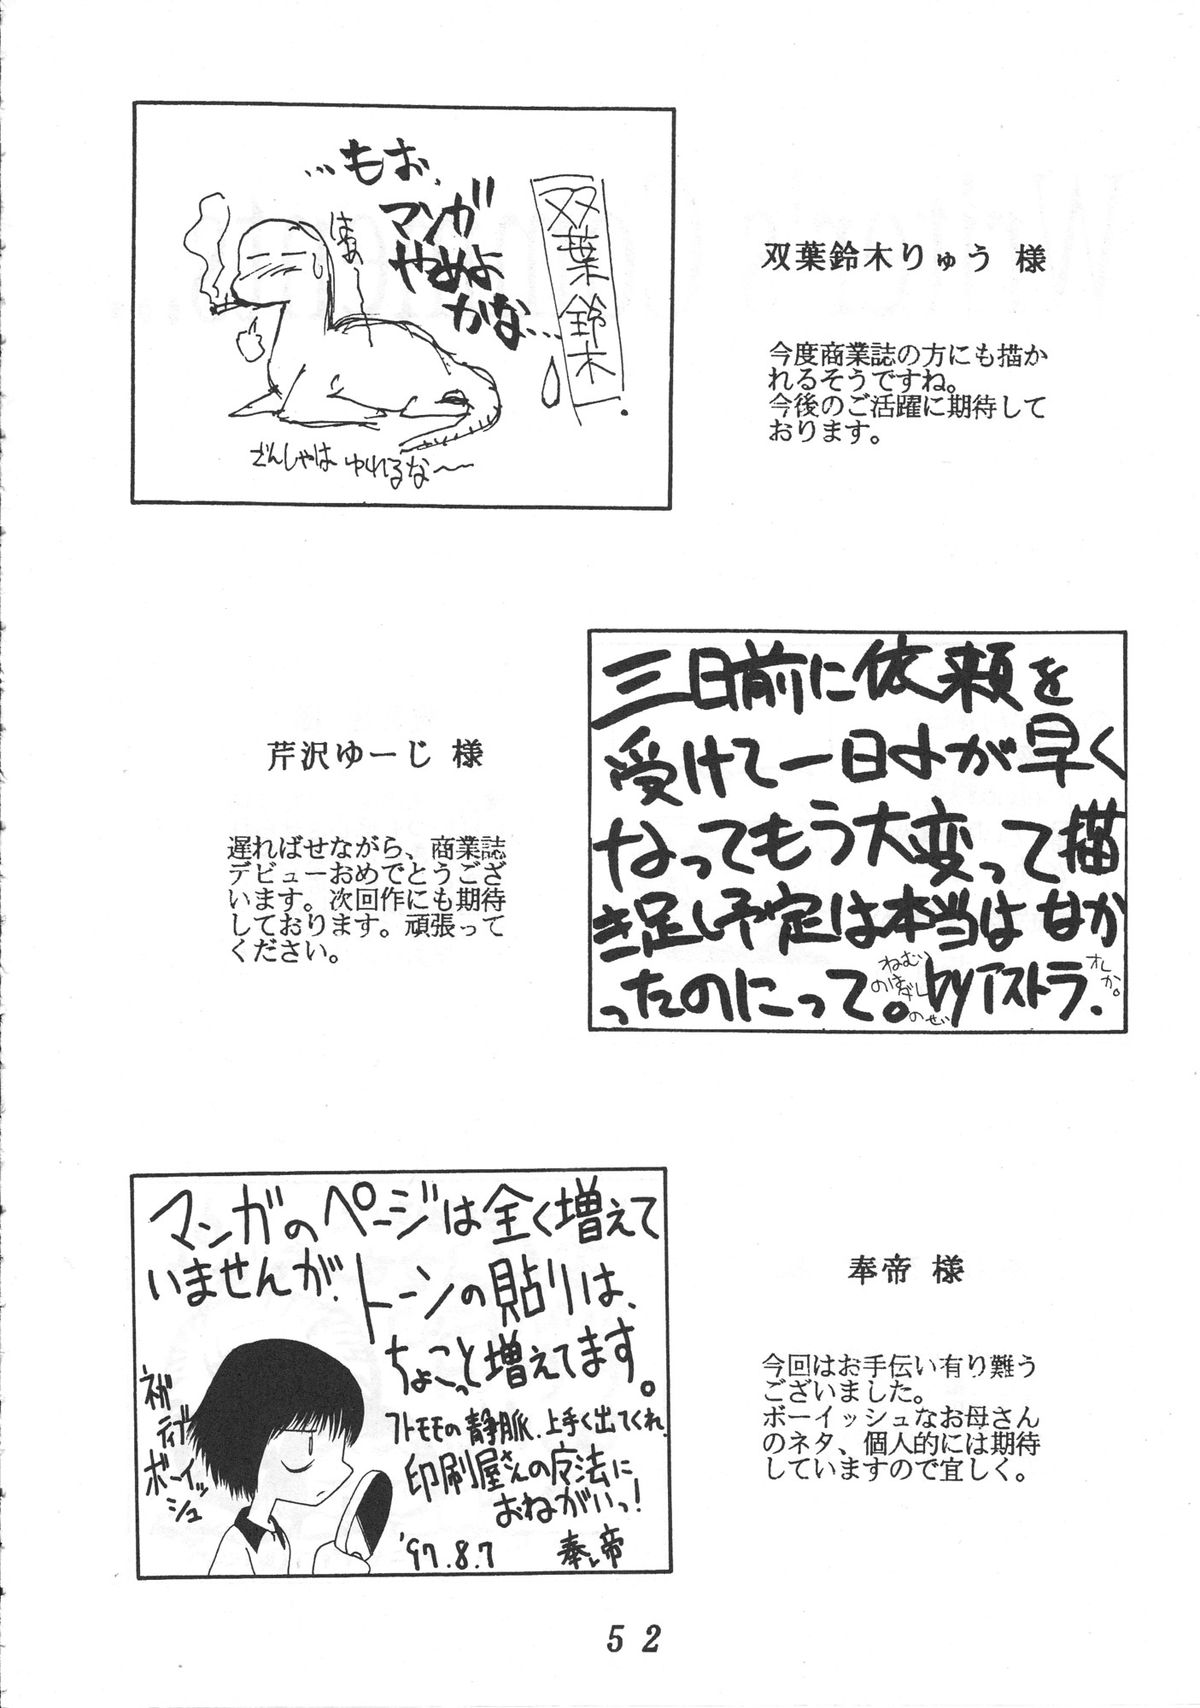 …もお、
マンガ
やめよ
かな…
はぁ〜
双葉鈴木
ざんしゃは ゆれるな〜〜
双葉鈴木りゅう 様
今度商業誌の方にも描か
れるそうですね。
今後のご活躍に期待して
おります。
三日前に依頼を
受けて一日〆が早く
なってもう大変って描
き足し予定は本当は なか
ったのにって。byアストラ.
芹沢ゆーじ 様
遅ればせながら、商業誌
デビューおめでとうござ
います。次回作にも期待
しております。頑張って
ください。
マンガのページは全く増えて
いませんが、トーンの貼りは、
ちょこっと増えてます。
フトモモの静脈、上手く出てくれ、
印刷屋さんの魔法に
おねがいっ!
'97.8.7 奉帝
ネガ
ティブ
ボーイッ
シュ
奉帝 様
今回はお手伝い有り難う
ございました。
ボーイッシュなお母さん
のネタ、個人的には期待
していますので宜しく。
52